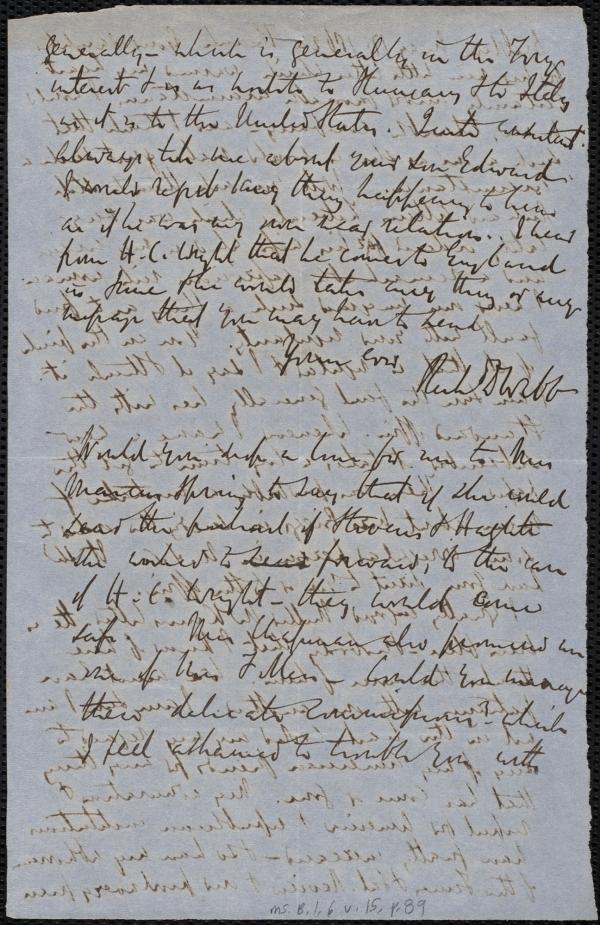 generally – which is generally in the Tory
interest & is as hostile to Hungary & to Italy
as it is to the United States.
Always tell me about your son Edward.
I would regret any thing happening to him
as if he was my own near relation. I hear
from H. C. Wright that he comes to England
in June & he would take any thing or any
message that you may have to send
Yours ever
Rich D Webb
Would you drop a line for me to Mrs
Marcus Spring to say that if she could
send the portrait of Stevens & Hazlitt
she wished to forward, to the care
of H. C. Wright – they would come
safe. Mrs Chapman also promised me
one of Mrs F – Could you manage
these delicate commissions – which
I feel ashamed to trouble you with
ms. B. 1. 6 v. 15, p. 89